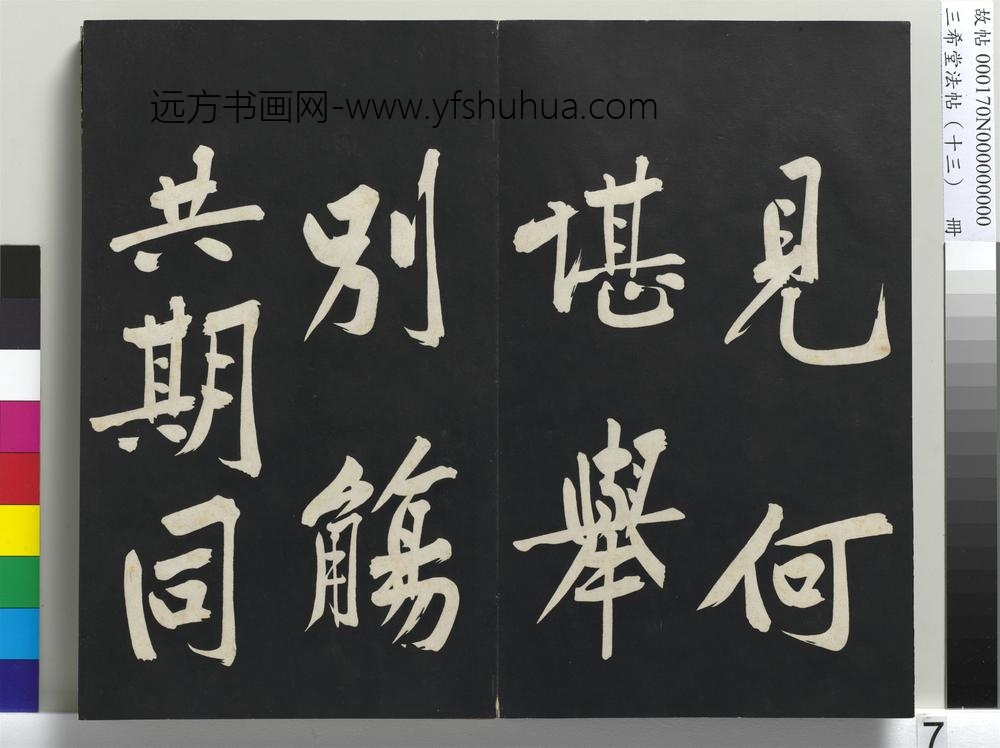 見何
堪舉
別觴
共期同
远方书画网-www.yfshuhua.com
故帖 000170N000000000
三希堂法帖（十三） 冊
7